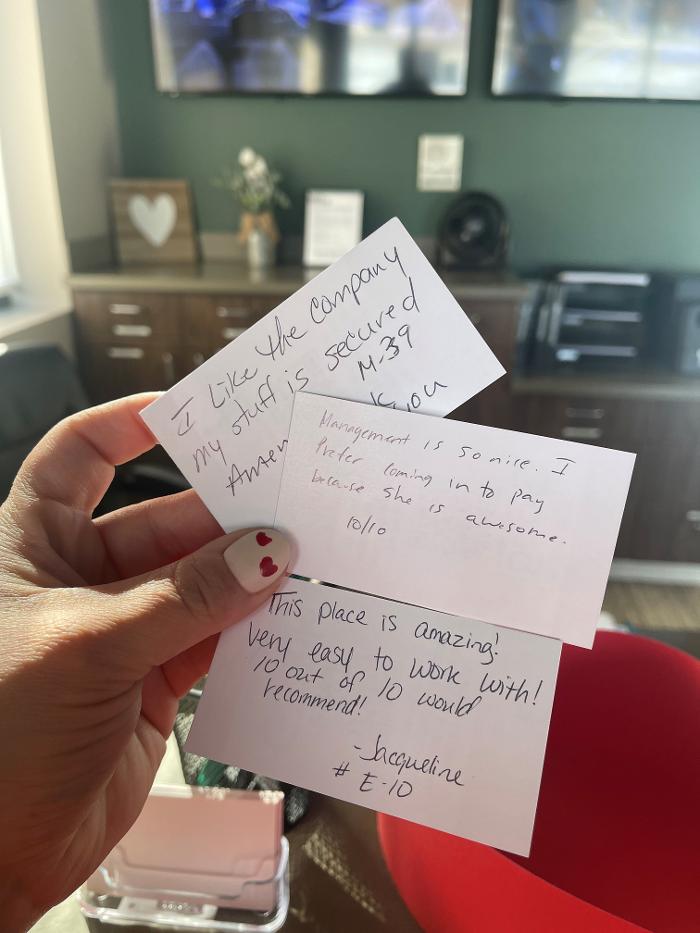 I Like the company
my stuff is secured
M-39
you
Management is so nice. I
Prefer coming in to pay
because she is awesome.
10/10
This place is amazing!
Very easy to work with!
10 out of 10 would
recommend!
-Jacqueline
# E-10